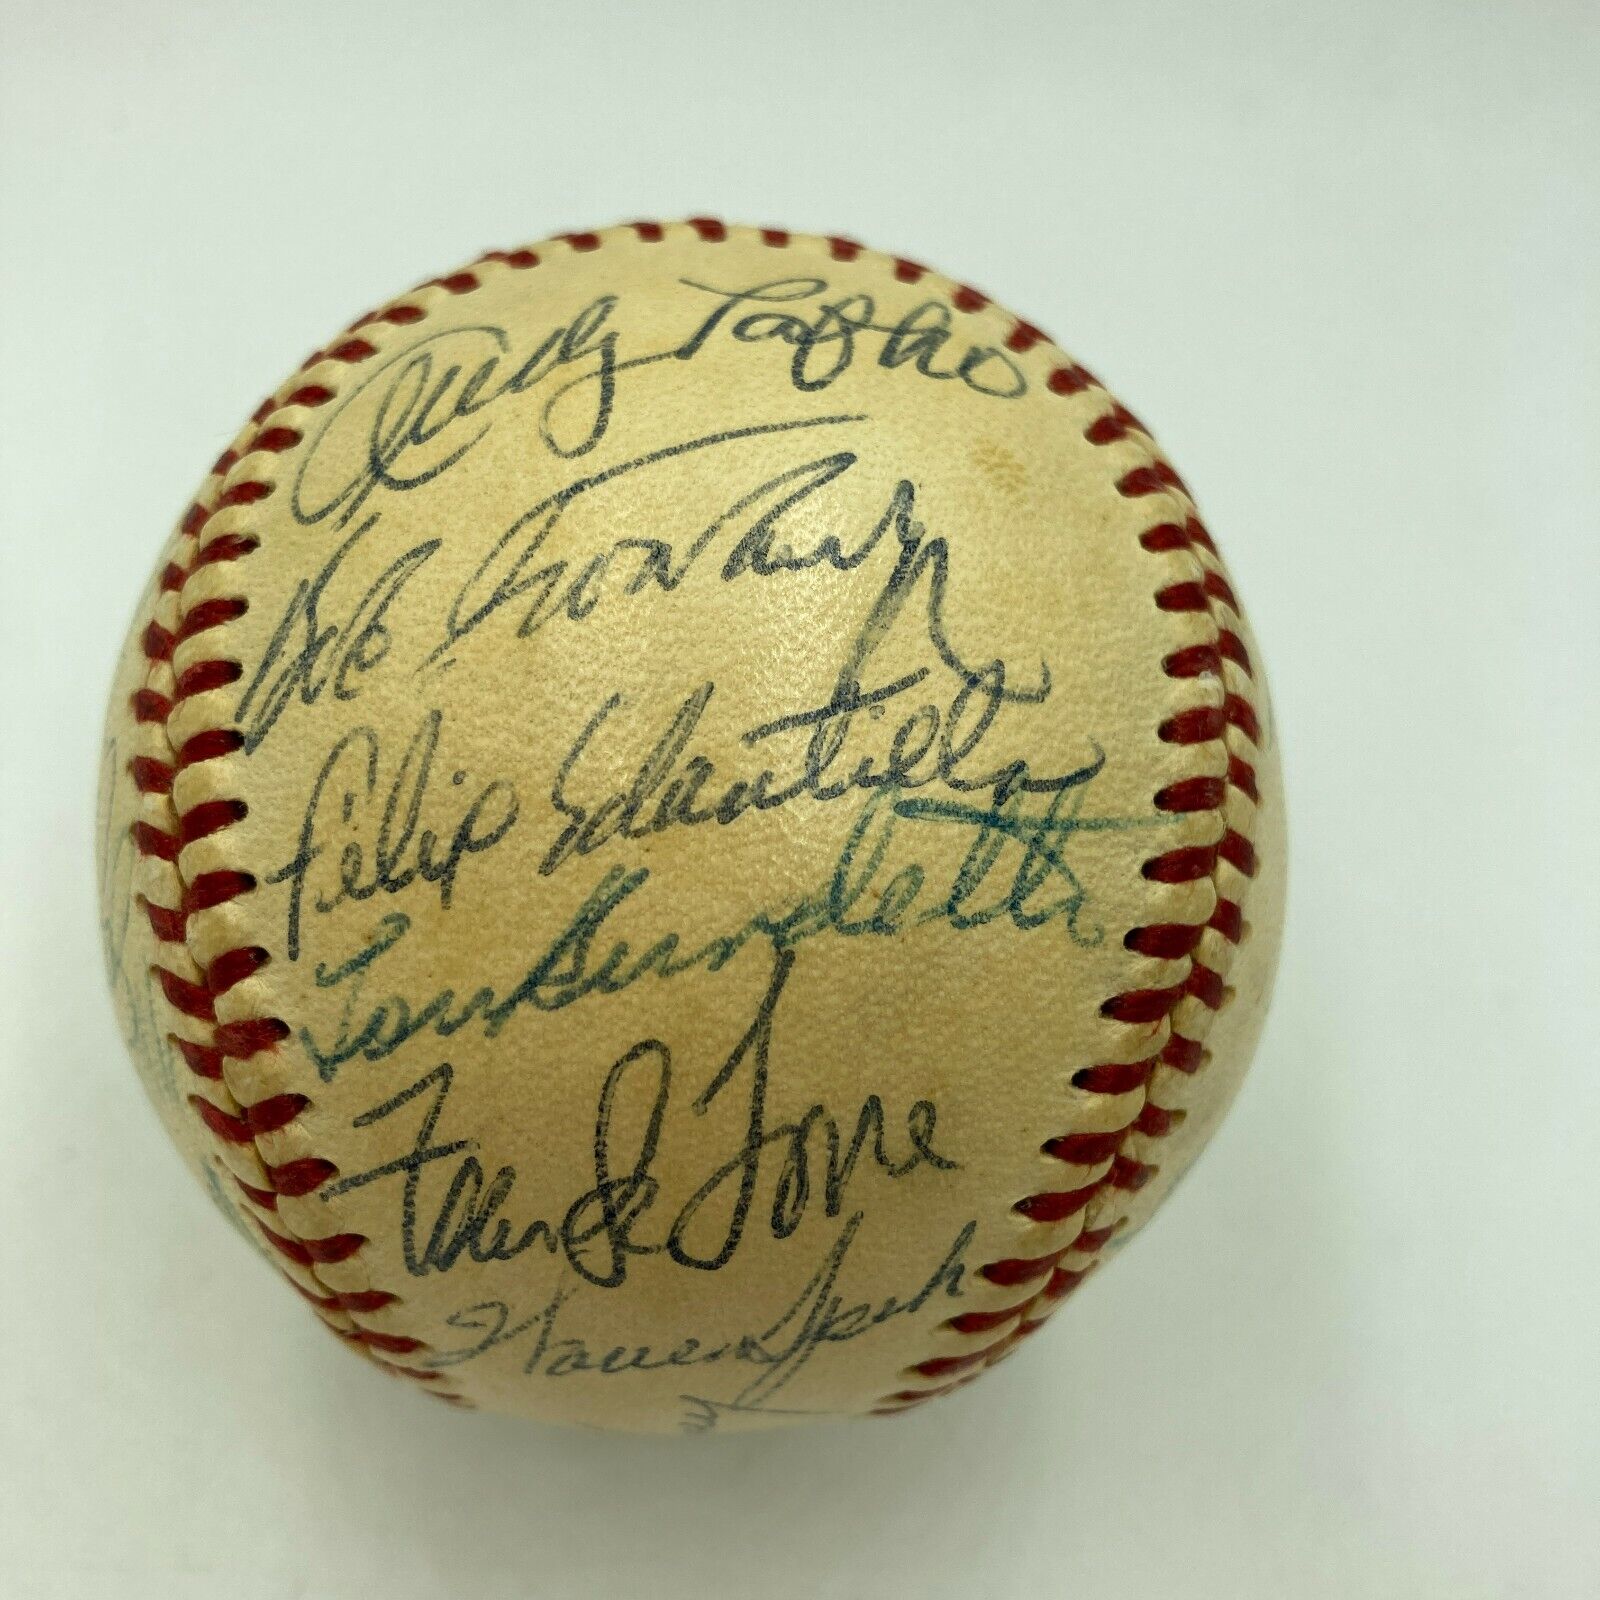 Andy Pafko
Bob Trowbridge
Felix Mantilla
Lou Burdette
Frank Torre
Warren Spahn